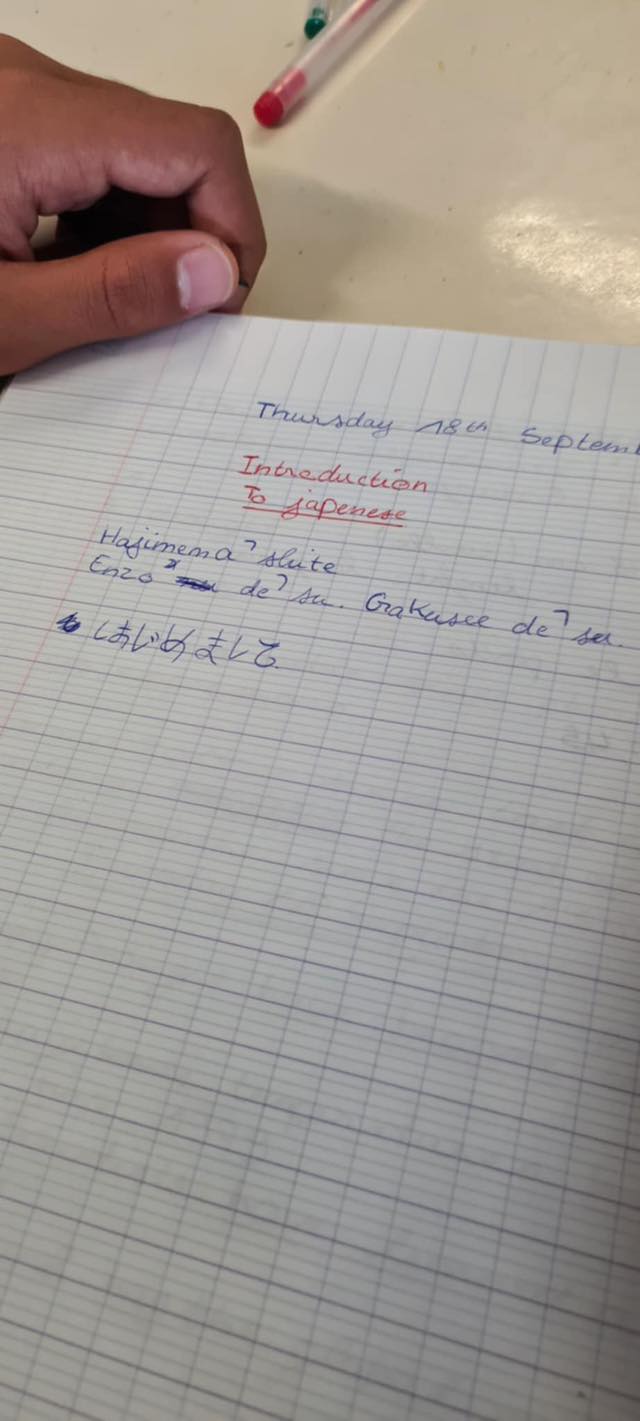 Thursday 18th Septem
Introduction
To japenese
Hajimema ꜣ shite
Enzo de ꜣ su. Gakusee de ꜣ su.
はじめまして